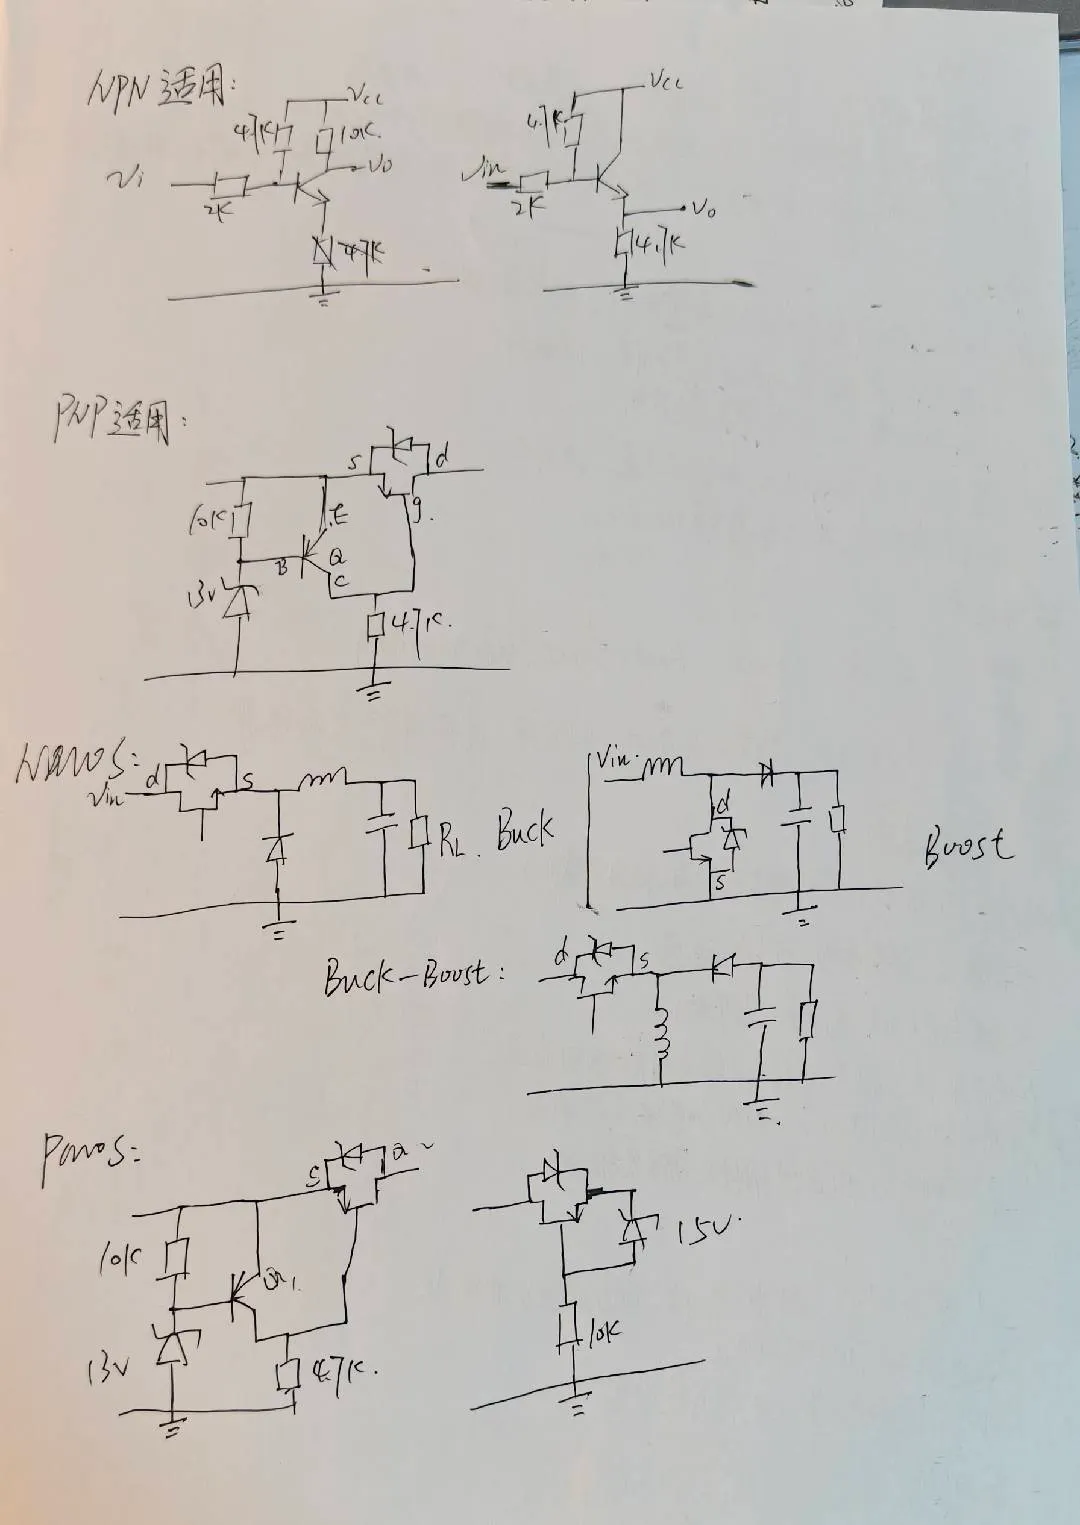 NPN适用:
Vcc
4.7K
10K
Vo
Vi
2K
4.7K
Vcc
4.7K
Vin
2K
Vo
4.7K
PNP适用:
s
d
g.
10K
E
B
Q
C
13V
4.7K.
NMOS:
d
s
Vin
RL.
Buck
Vin
d
s
Boost
Buck-Boost:
d
s
PMOS:
S
10K
Q1.
13V
4.7K.
15V.
10K